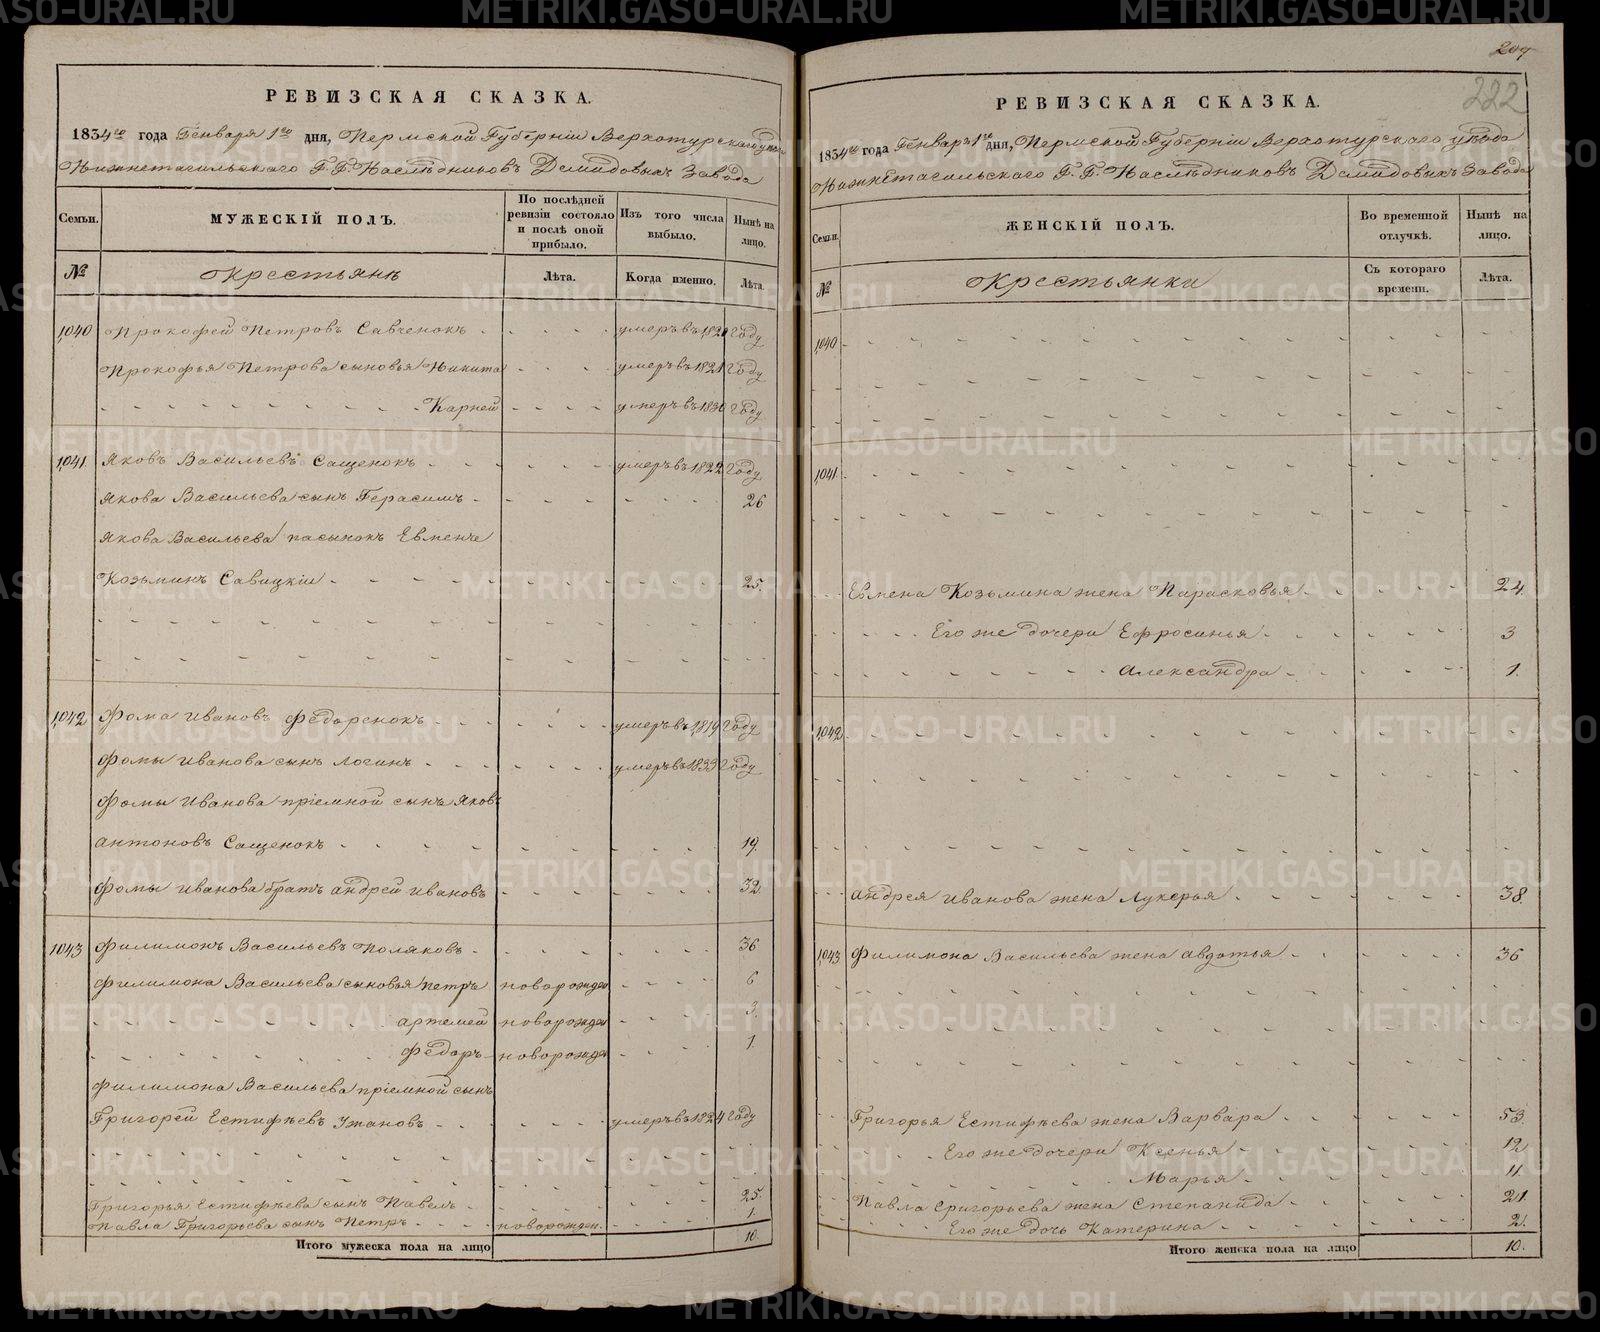 РЕВИЗСКАЯ СКАЗКА.
1834го года Генваря 1го дня, Пермской Губерніи Верхотурскаго уезда
Нижнетагильскаго Г.Г. Наслѣдниковъ Демидовыхъ Завода
Семьи.
МУЖЕСКІЙ ПОЛЪ.
По послѣдней ревизіи состояло и послѣ оной прибыло.
Изъ того числа выбыло.
Нынѣ на лицо.
№
Крестьянѣ
Лѣта.
Когда именно.
Лѣта.
1040 Прокофей Петровъ Савченокъ умеръ въ 1820 году
Прокофья Петрова сыновья Никита умеръ въ 1821 году
Карней умеръ въ 1830 году
1041 Яковъ Васильевъ Сащенокъ умеръ въ 1822 году
Якова Васильева сынъ Герасимъ 26
Якова Васильева пасынокъ Евмене
Козьминъ Савицкіи 25.
1042 Фома Ивановъ Федоренокъ умеръ въ 1819 году
Фомы Иванова сынъ Логинъ умеръ въ 1833 году
Фомы Иванова пріемной сынъ Яковъ
Антоновъ Сащенокъ 19.
Фомы Иванова братъ Андрей Ивановъ 32
1043 Филимонъ Васильевъ Поляковъ 36
Филимона Васильева сыновья Петръ новорожден 6
Артемей новорожден 3.
Федоръ новорожден 1.
Филимона Васильева пріемной сынъ
Григорей Естифѣевъ Ужановъ умеръ въ 1824 году
Григорья Естифѣева сынъ Павелъ 25.
Павла Григорьева сынъ Петръ новорожден. 1.
Итого мужеска пола на лицо 10.
209
222
РЕВИЗСКАЯ СКАЗКА.
1834го года Генваря 1го дня, Пермской Губерніи Верхотурскаго уѣзда
Нижнетагильскаго Г.Г. Наслѣдниковъ Демидовыхъ Завода
Семьи.
ЖЕНСКІЙ ПОЛЪ.
Во временной отлучкѣ.
Нынѣ на лицо.
№
Крестьянки
Съ котораго времени.
Лѣта.
1040
1041.
Евмена Козьмина жена Парасковья 24.
Его же дочери Ефросинья 3
Александра 1.
1042
Андрея Иванова жена Лукерья 38.
1043 Филимона Васильева жена Авдотья 36
Григорья Естифѣева жена Варвара 53.
Его же дочери Ксенья 12
Марья 11.
Павла Григорьева жена Степанида 21
Его же дочь Катерина 2.
Итого женска пола на лицо 10.
METRIKI.GASO-URAL.RU